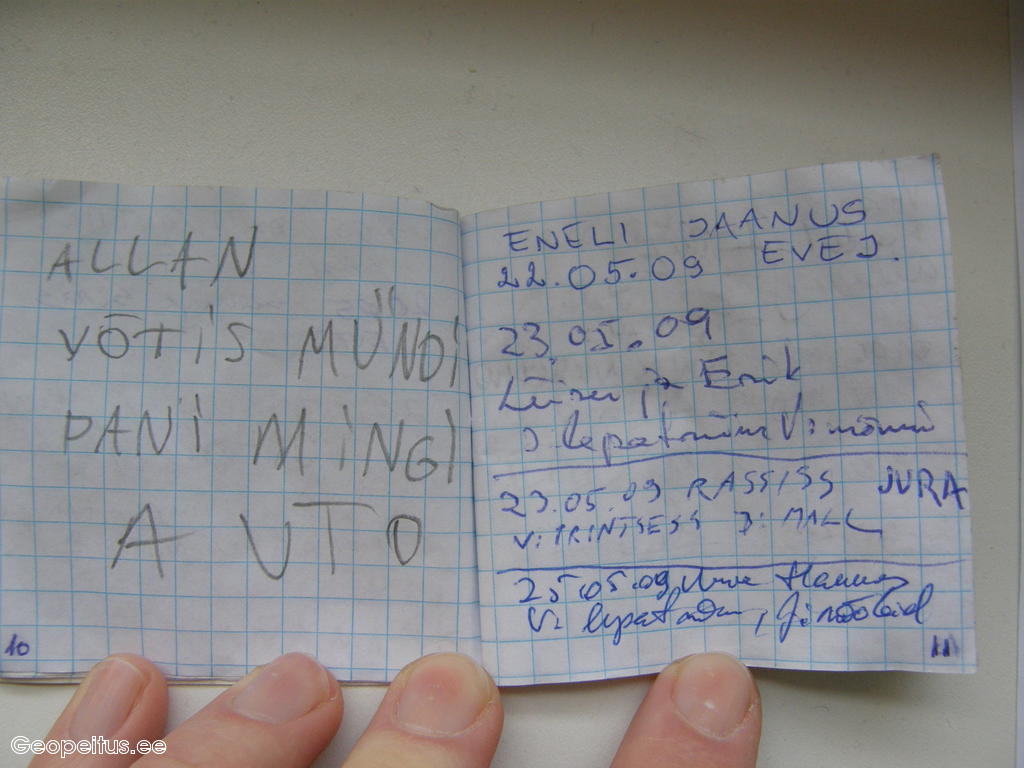 ALLAN
VÕTIS MÜNDI
PANI MINGI
AUTO
10
ENELI JAANUS
22.05.09 EVEJ.
23.05.09
ja Erik
J lepatriinu V:
23.05.09 RASSISS JURA
V: PRINTSESS J: MALL
25.05.09 Hannes
V:
11
Geopeitus.ee